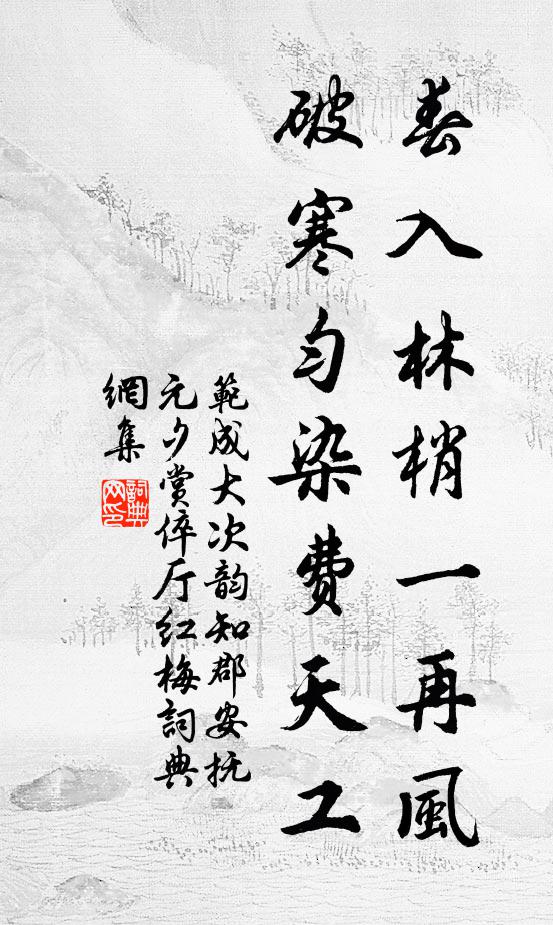 春入林梢一再風
破寒匀染費天工
範成大次韵知郡安抚
元夕赏倅厅红梅詞典
網集
詞典
网印